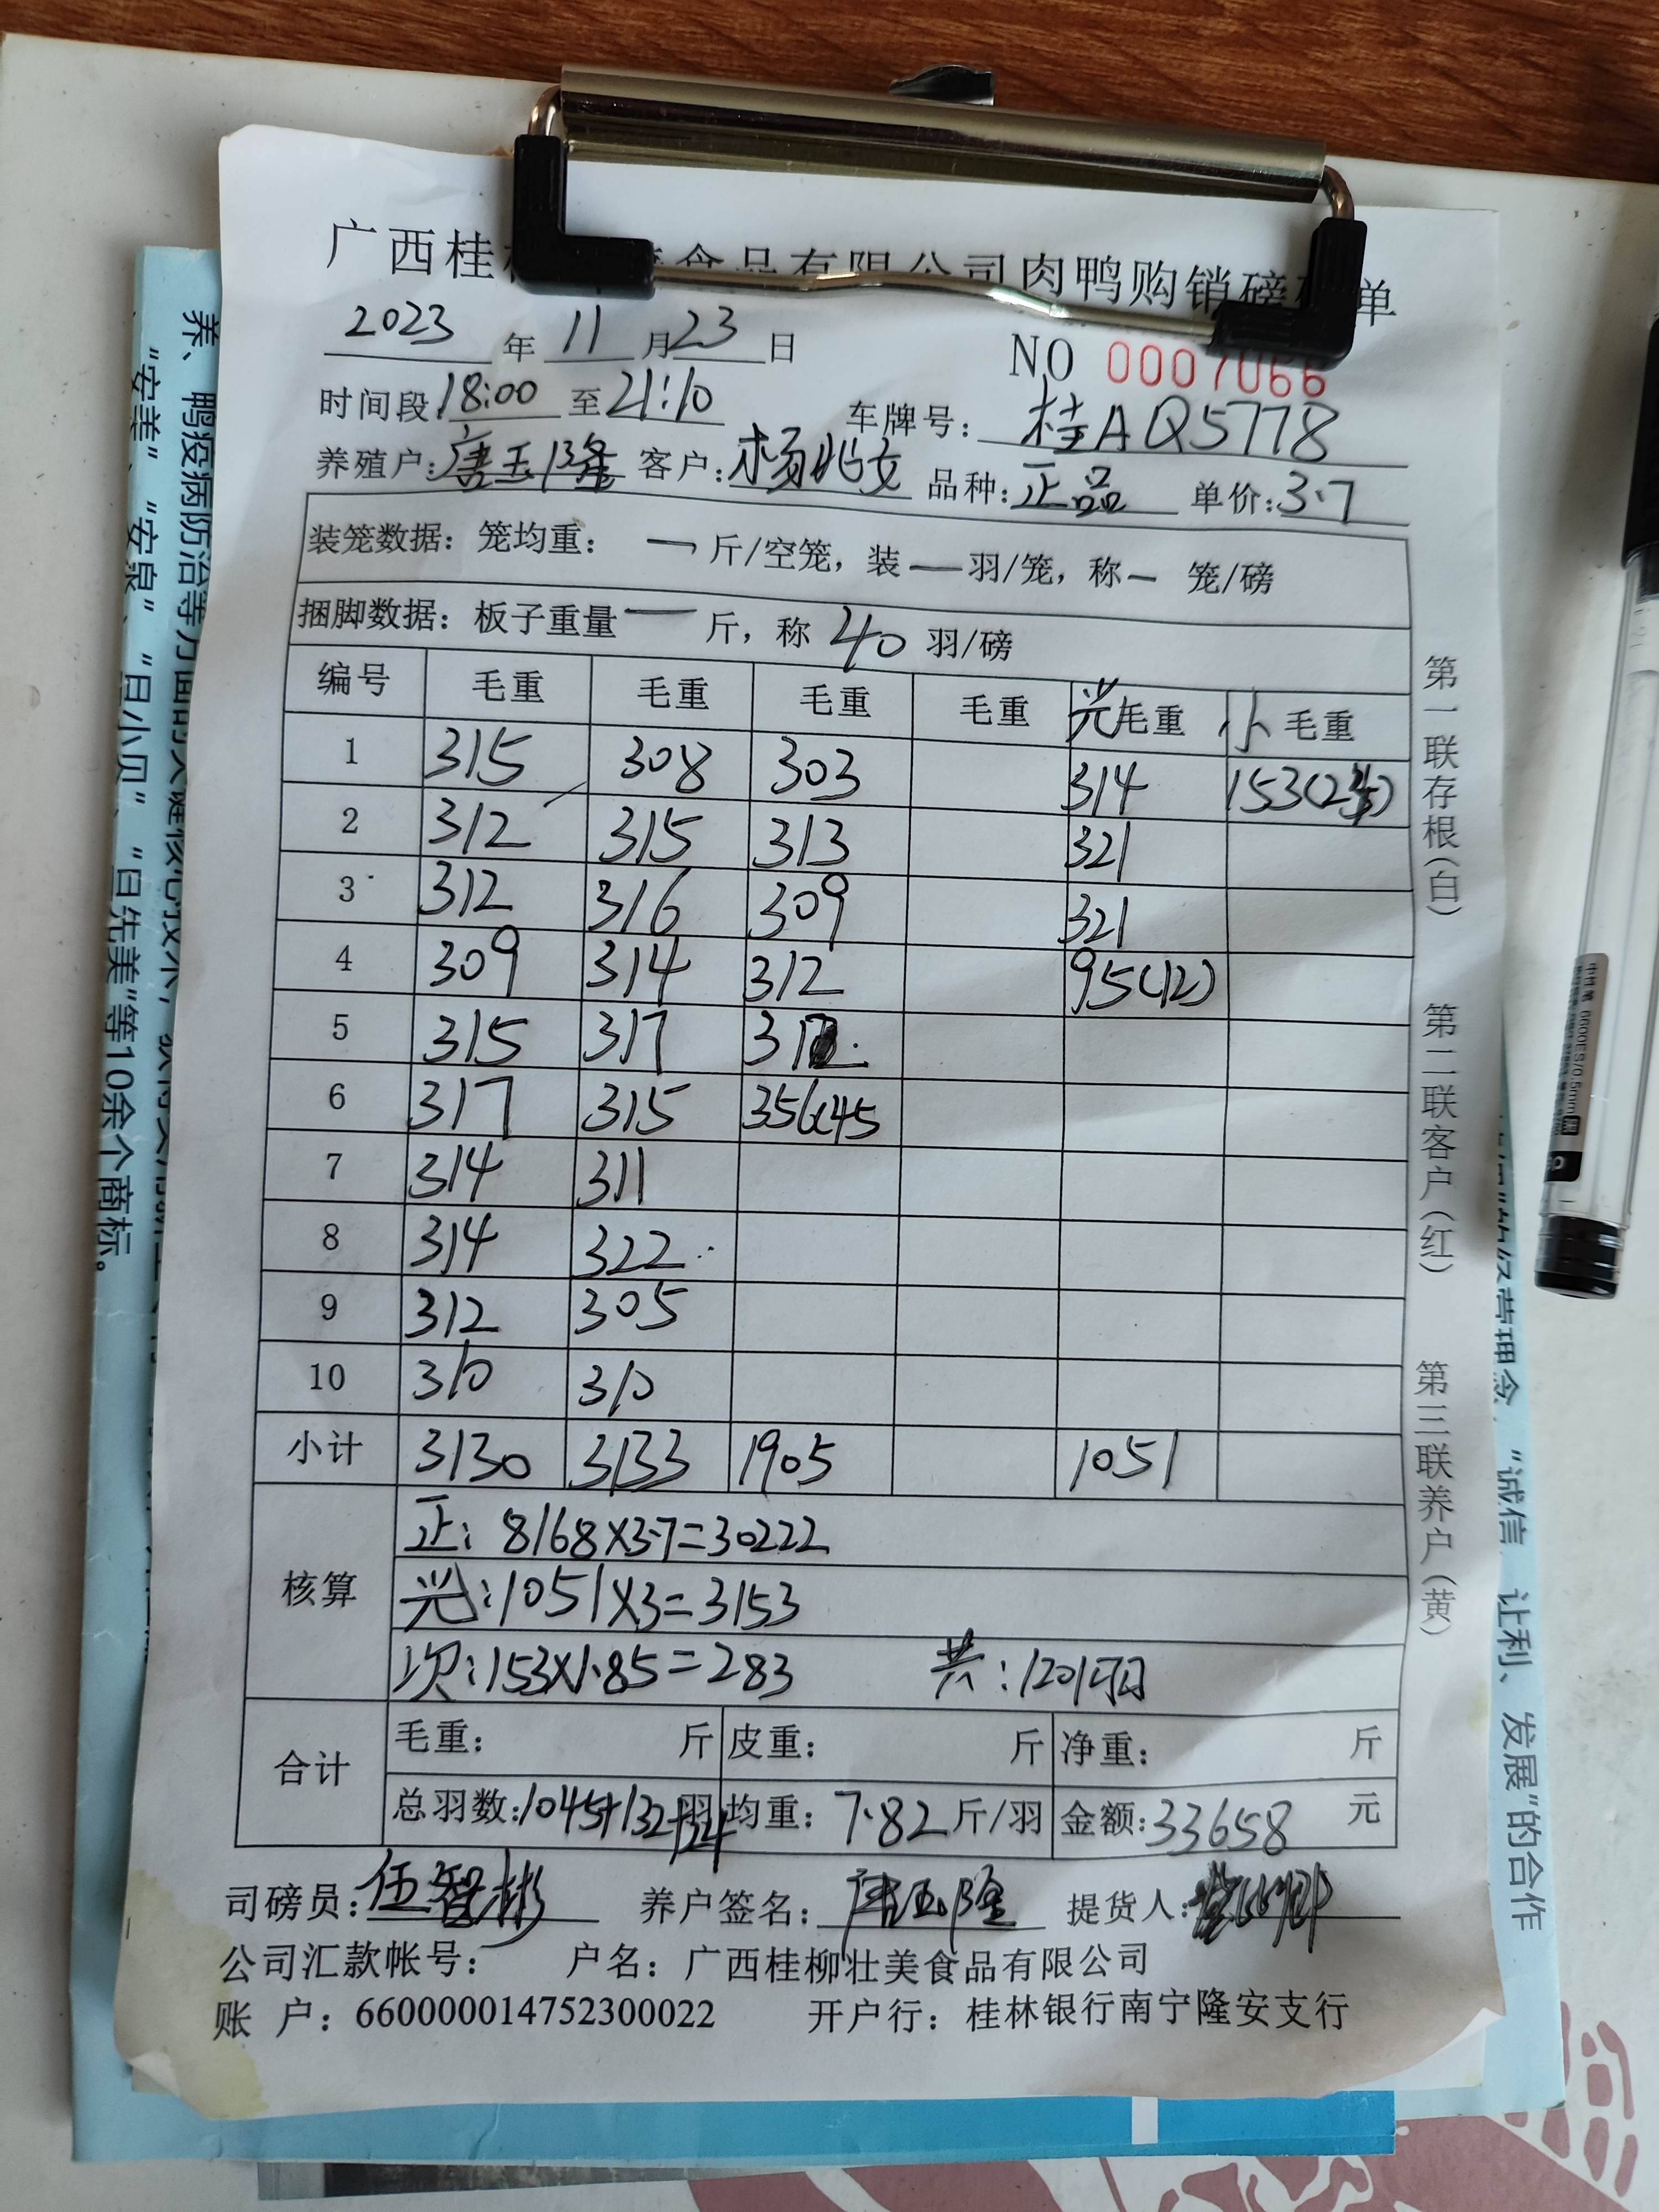 广西桂 食品有限公司肉鸭购销磅 单
2023 年 11 月 23 日
NO 0007066
时间段 18:00 至 21:10 车牌号: 桂AQ5778
养殖户: 唐玉隆 客户: 杨兆 品种: 正品 单价: 3.7
装笼数据: 笼均重: — 斤/空笼, 装 — 羽/笼, 称 — 笼/磅
捆脚数据: 板子重量 — 斤, 称 40 羽/磅
编号 毛重 毛重 毛重 毛重 光毛重 小毛重
1 315 308 303 314 153(24)
2 312 315 313 321
3 312 316 309 321
4 309 314 312 95(12)
5 315 317 312
6 317 315 356(45
7 314 311
8 314 322
9 312 305
10 310 310
小计 3130 3133 1905 1051
核算
正: 8168×3.7=30222
光:1051×3=3153
次:153×1.85=283 共:1201羽
合计
毛重: 斤 皮重: 斤 净重: 斤
总羽数:1045+132+24 羽 均重: 7.82 斤/羽 金额:33658 元
司磅员: 伍智彬 养户签名: 唐玉隆 提货人:
公司汇款帐号: 户名: 广西桂柳壮美食品有限公司
账 户: 660000014752300022 开户行: 桂林银行南宁隆安支行
第一联存根(白) 第二联客户(红) 第三联养户(黄)
养、鸭疫病防治等方面的
“安美”、“安泉”、“日小贝”、“日先美”等10余个商标。
“诚信、让利、发展”的合作
中性笔 6600ES/0.5mm